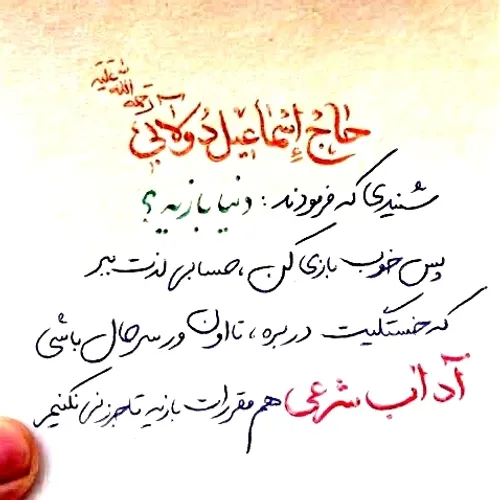 حاج إسماعیل دولابی رحمة الله علیه
شنیدی که فرمودند: دنیا بازیه؟
پس خوب بازی کن، حسابی لذت ببر
که خستگیت در بره، تا اون ور سرحال باشی
آداب شرعی هم مقررات بازیه تا جرزنی نکنیم